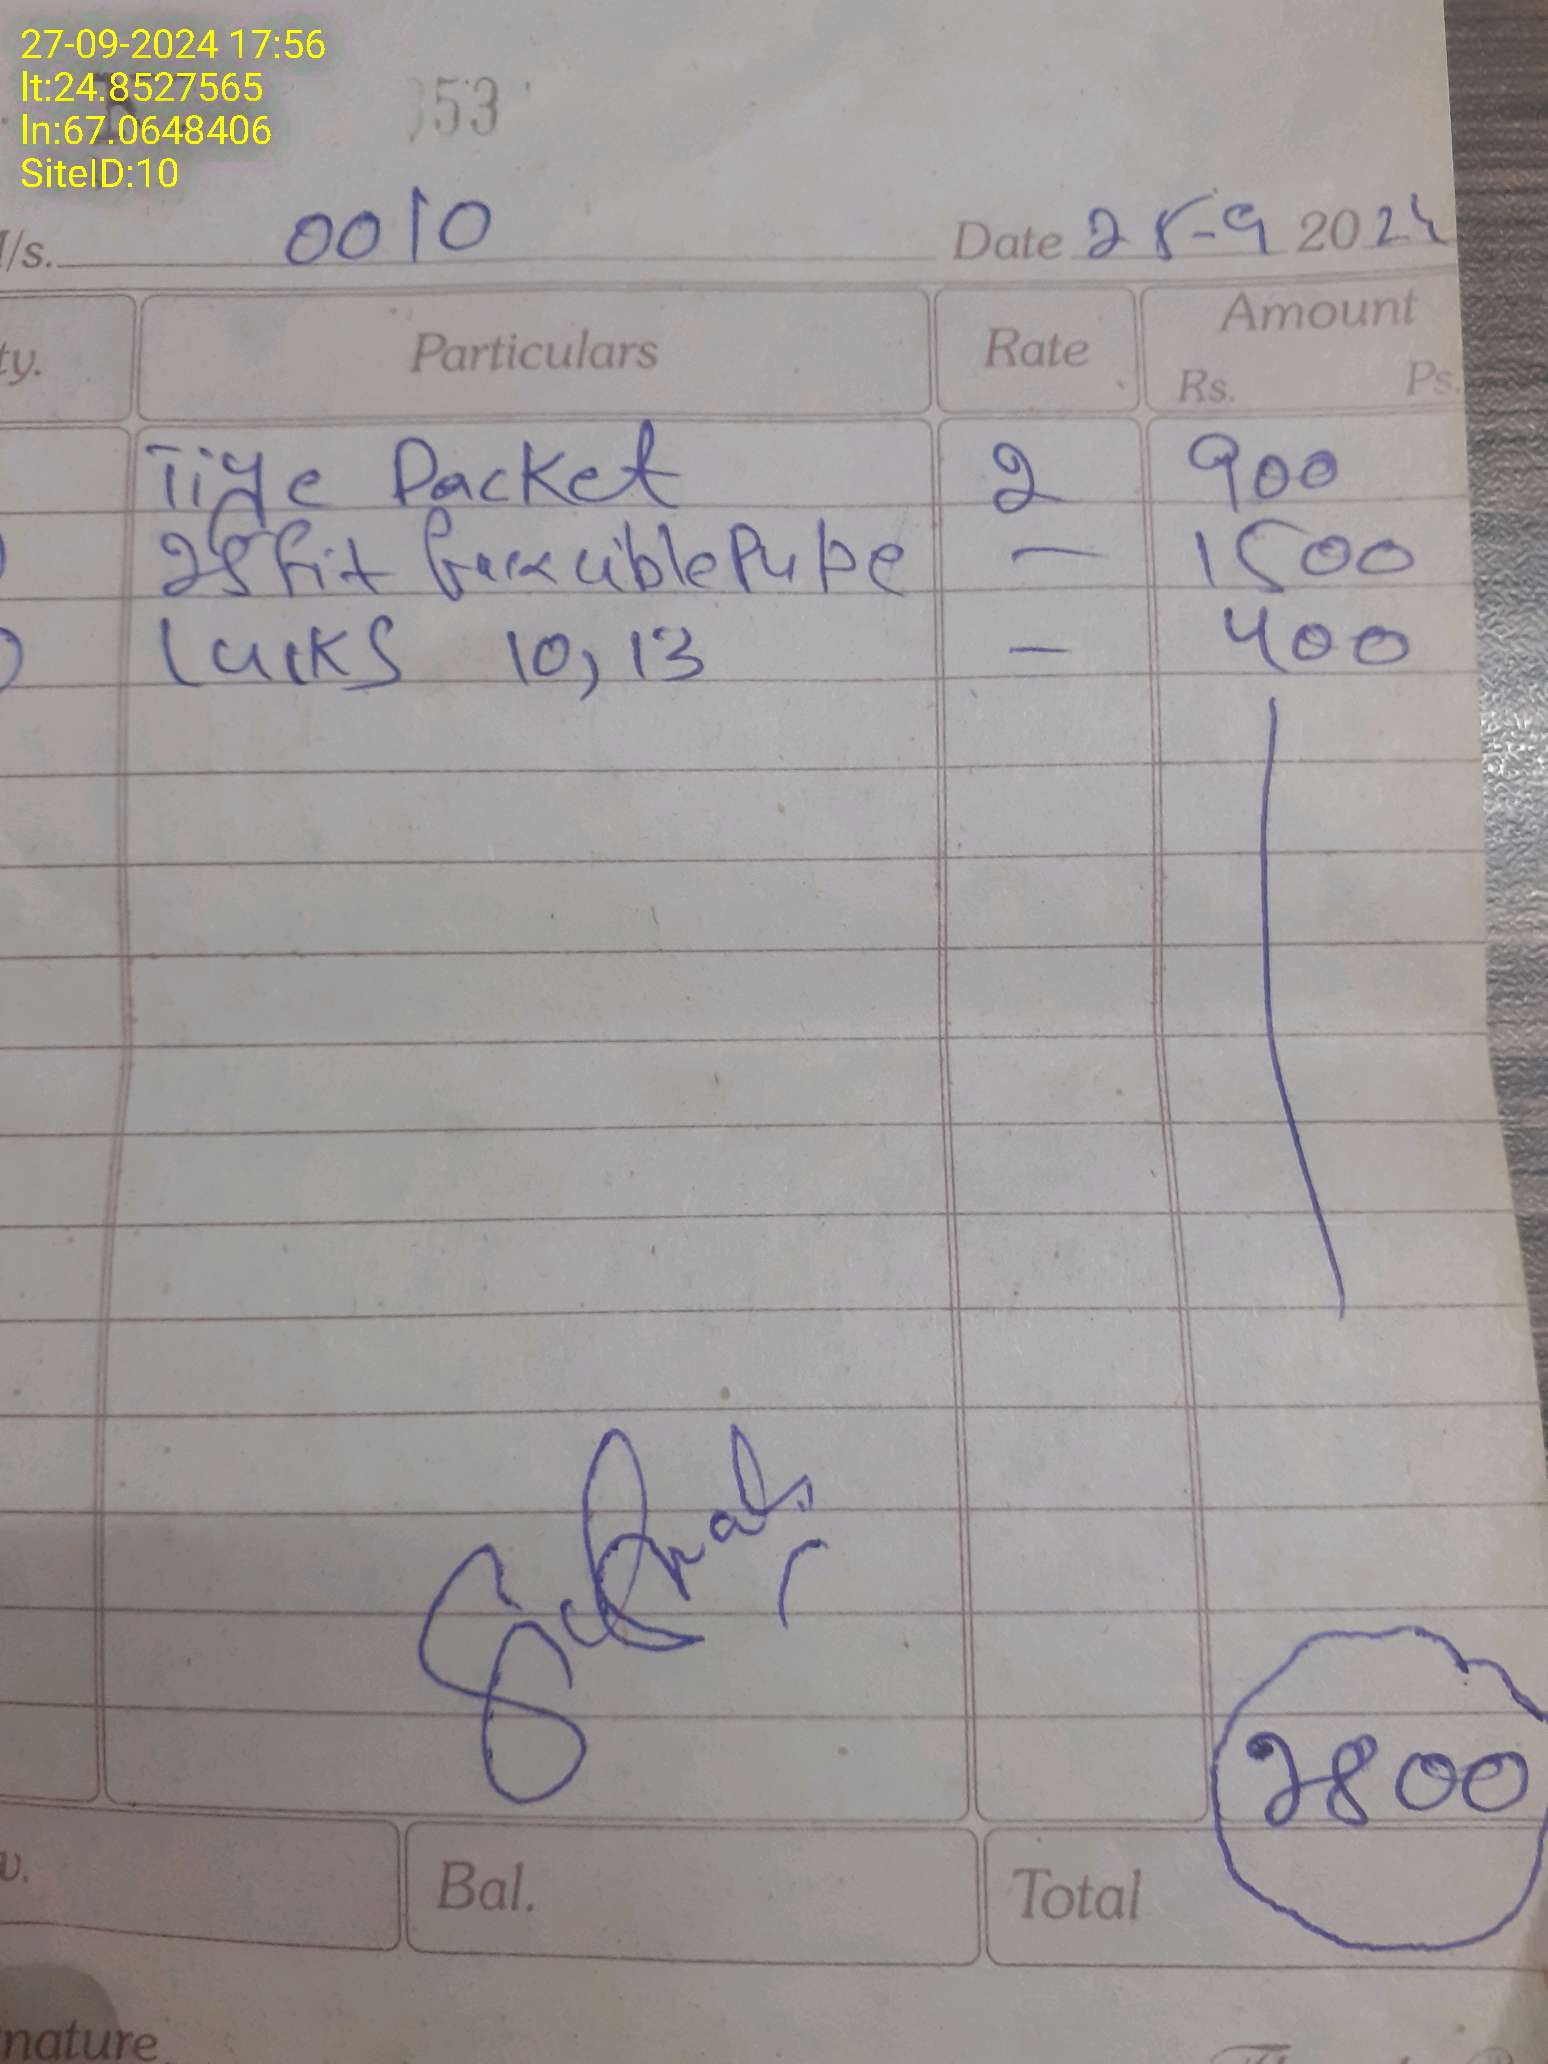 27-09-2024 17:56
lt:24.8527565
ln:67.0648406
SiteID:10
53
/s. 0010 Date 25-9 2024
ty. Particulars Rate Amount
Rs. Ps.
Packet 2 900
Pupe — 1500
10, 13 — 400
2800
v. Bal. Total
nature